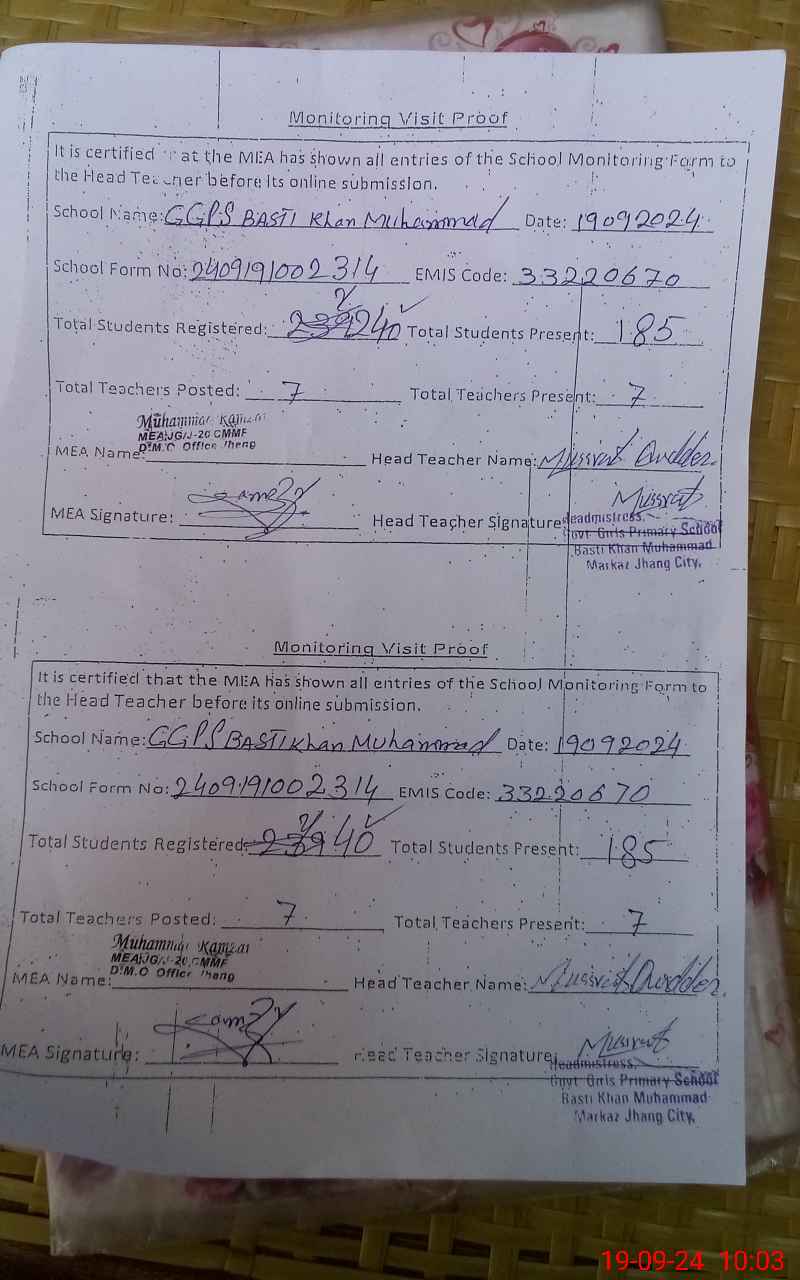 Monitoring Visit Proof
It is certified at the MEA has shown all entries of the School Monitoring Form to
the Head Teacher before its online submission.
School Name: GGPS BASTI Khan Muhammad Date: 19092024
School Form No: 2409191002314 EMIS Code: 33220670
Total Students Registered: 240 Total Students Present: 185
Total Teachers Posted: 7 Total Teachers Present: 7
Muhammad
D.M.O Office Jhang
MEA Name: Head Teacher Name: Mussrat
MEA Signature: Head Teacher Signature: Mussrat
Headmistress,
Govt Girls Primary School
Basti Khan Muhammad
Markaz Jhang City.
Monitoring Visit Proof
It is certified that the MEA has shown all entries of the School Monitoring Form to
the Head Teacher before its online submission.
School Name: GGPS BASTI Khan Muhammad Date: 19092024
School Form No: 2409191002314 EMIS Code: 33220670
Total Students Registered: 240 Total Students Present: 185
Total Teachers Posted: 7 Total Teachers Present: 7
Muhammad
D.M.O Office Jhang
MEA Name: Head Teacher Name: Mussrat
MEA Signature: Head Teacher Signature: Mussrat
Headmistress,
Govt Girls Primary School
Basti Khan Muhammad
Markaz Jhang City,
19-09-24 10:03